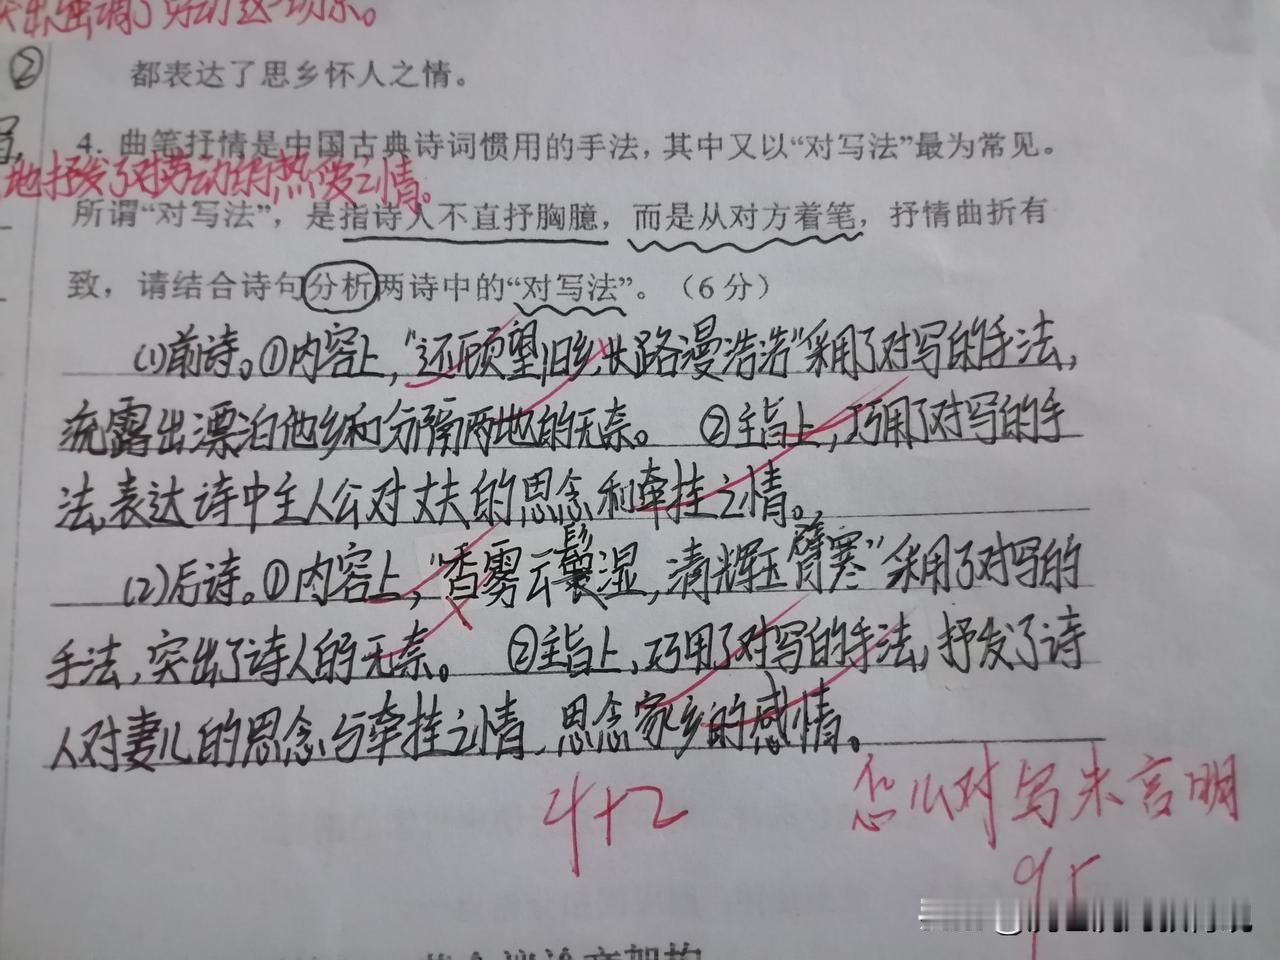 突出强调了劳动这一场景。
②
都表达了思乡怀人之情。
4. 曲笔抒情是中国古典诗词惯用的手法，其中又以“对写法”最为常见。
地抒发了对劳动的热爱之情。
所谓“对写法”，是指诗人不直抒胸臆，而是从对方着笔，抒情曲折有
致，请结合诗句分析两诗中的“对写法”。（6分）
(1)前诗。①内容上，“还顾望旧乡，长路漫浩浩”采用了对写的手法，
流露出漂泊他乡和分隔两地的无奈。 ②主旨上，巧用了对写的手
法，表达诗中主人公对丈夫的思念和牵挂之情。
(2)后诗。①内容上，“香雾云鬟湿，清辉玉臂寒”采用了对写的
手法，突出了诗人的无奈。 ②主旨上，巧用了对写的手法，抒发了诗
人对妻儿的思念与牵挂之情，思念家乡的感情。
4+2
怎么对写未言明